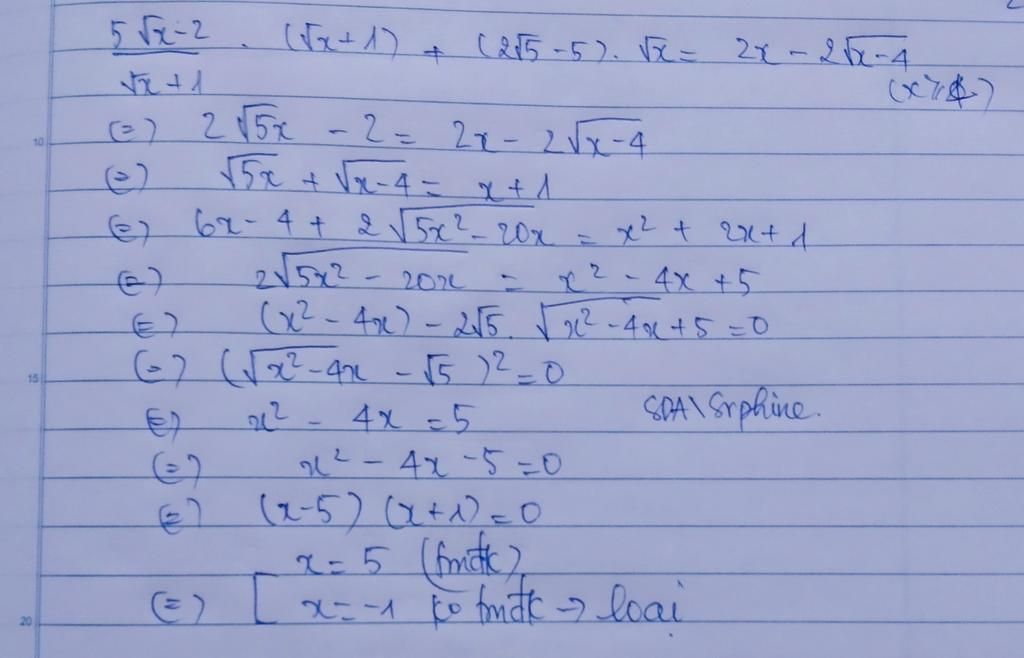 5√x-2 / √x+1 . (√x+1) + (2√5-5). √x = 2x - 2√x-4
(x≥4)
(=) 2√5x - 2 = 2x - 2√x-4
(=) √5x + √x-4 = x+1
(=) 6x - 4 + 2√5x² - 20x = x² + 2x + 1
(=) 2√5x² - 20x = x² - 4x + 5
(=) (x² - 4x) - 2√5. √x² - 4x + 5 = 0
(=) (√x² - 4x - √5)² = 0
(=) x² - 4x = 5
SDA\Srphine.
(=) x² - 4x - 5 = 0
(=) (x-5) (x+1) = 0
x = 5 (tmđk)
(=) [ x = -1 ko tmđk → loại
10
15
20